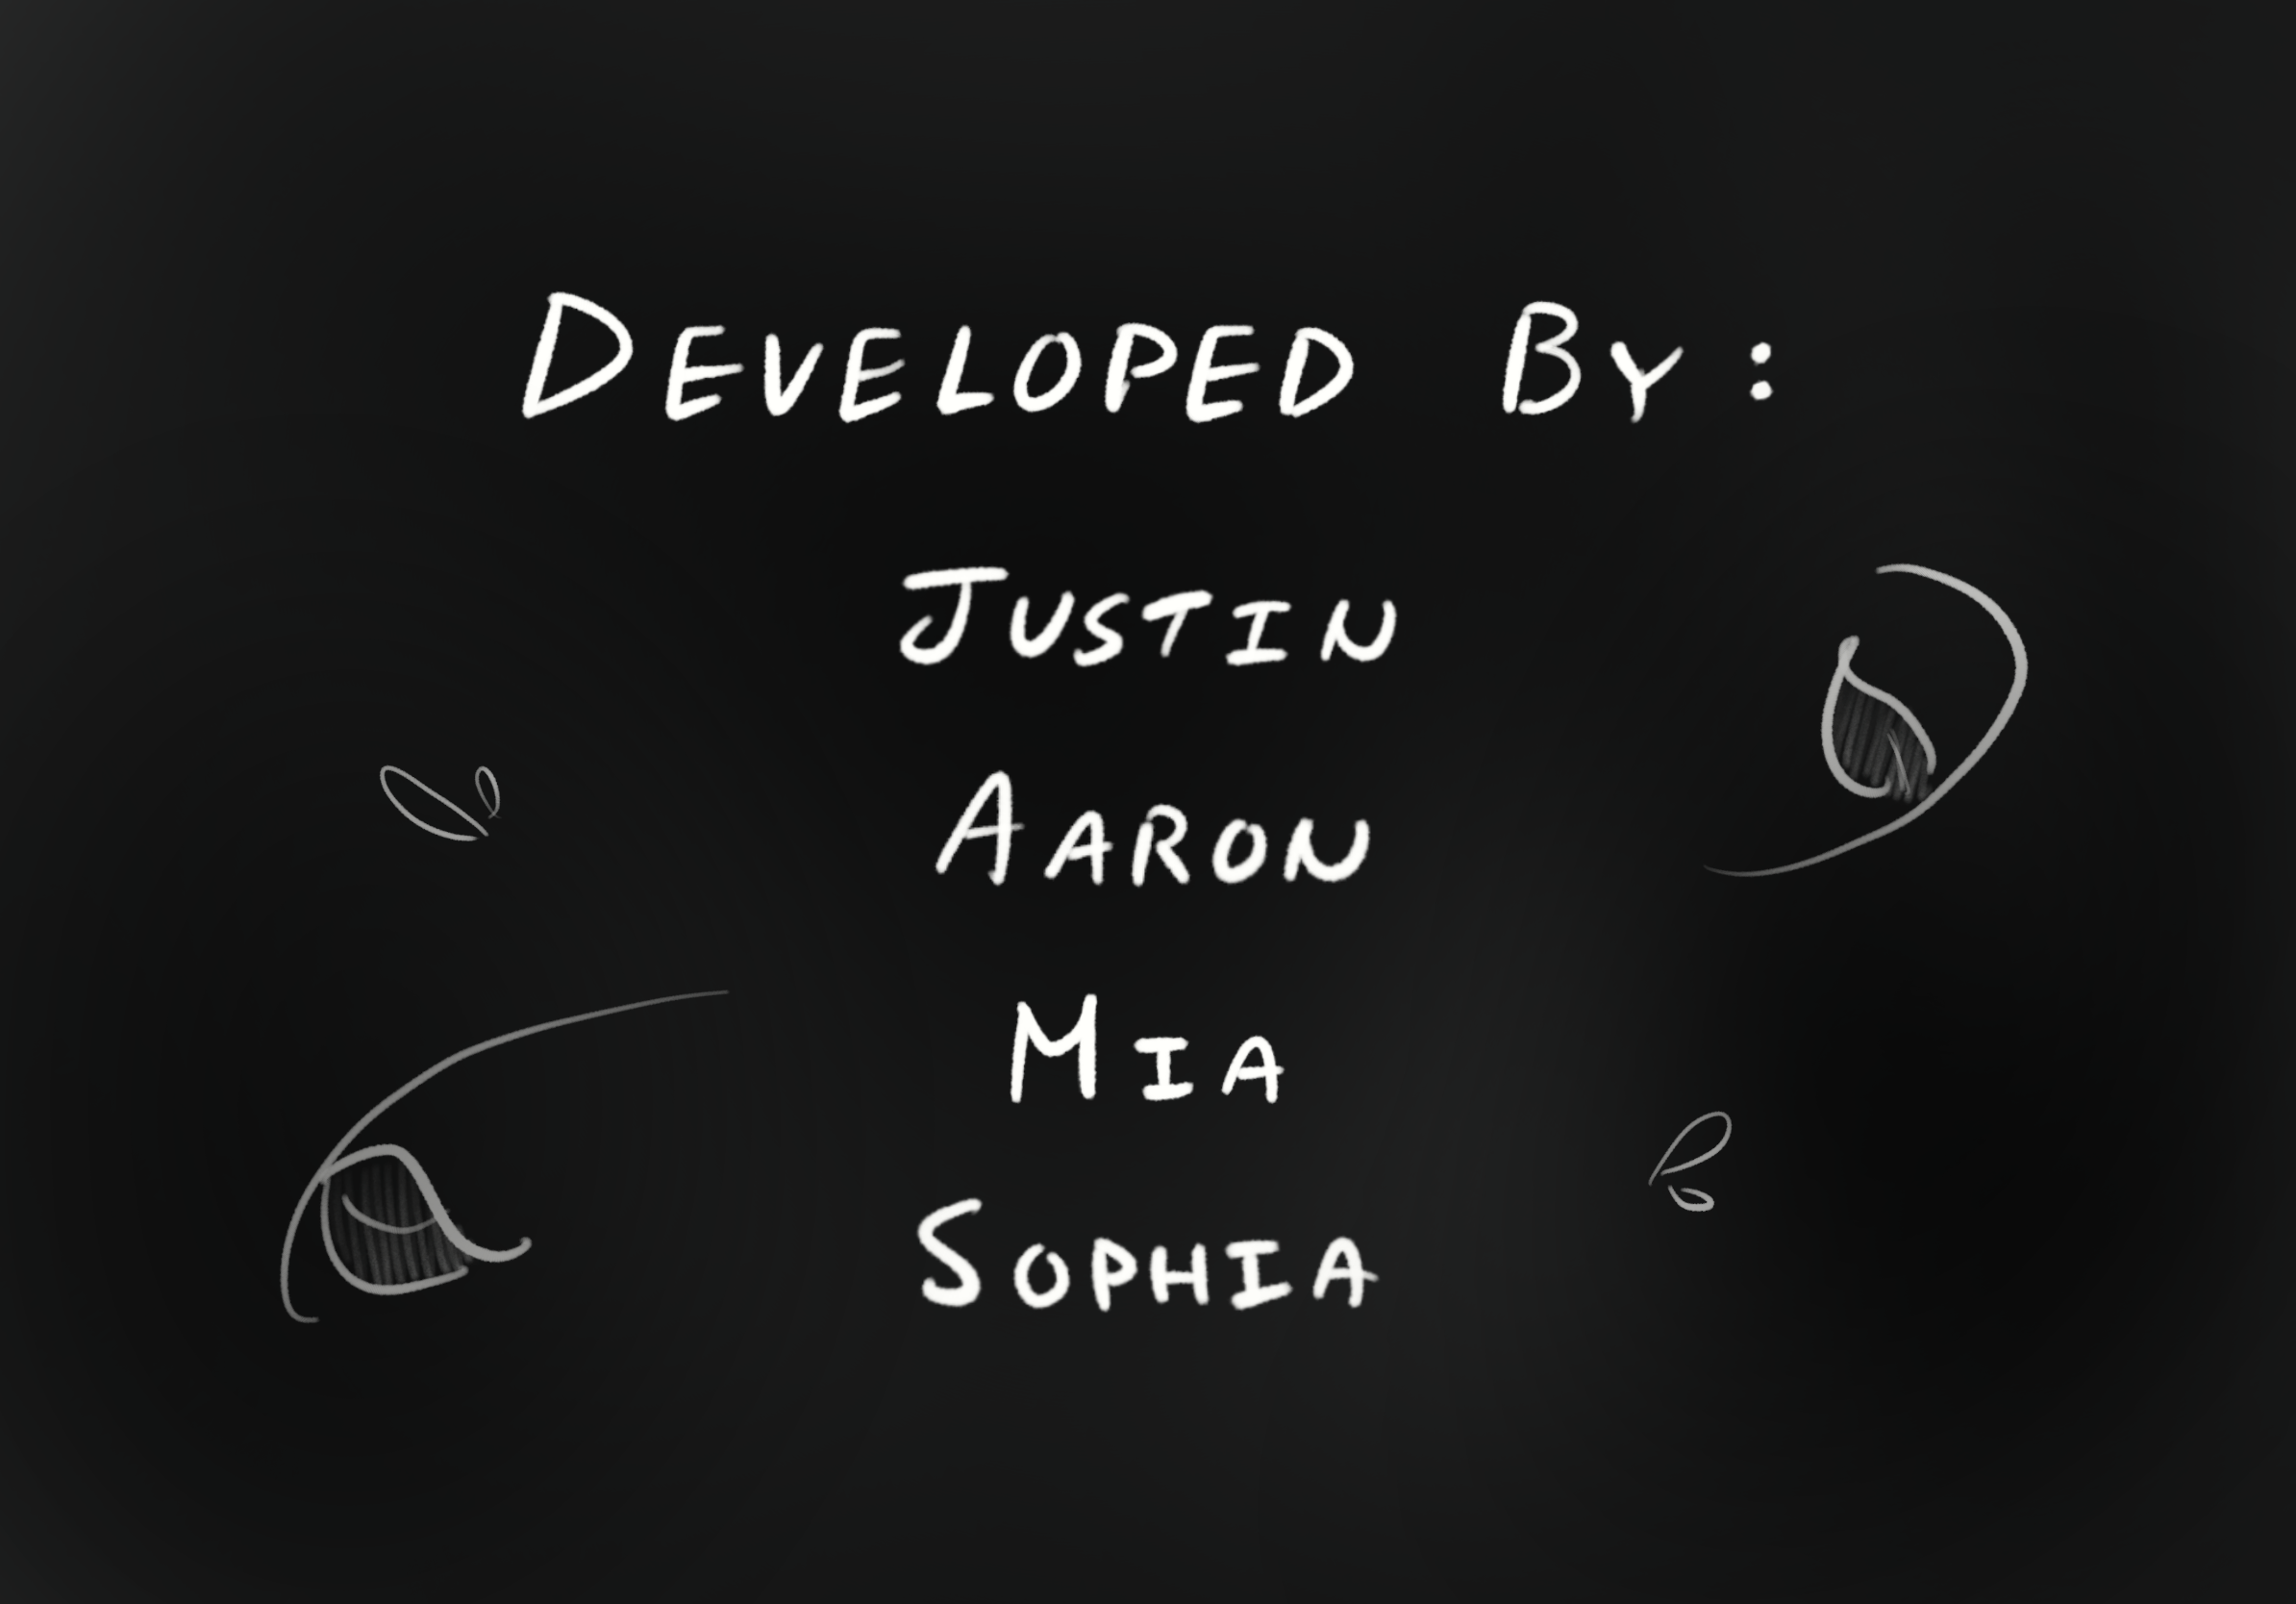 DEVELOPED BY:
JUSTIN
AARON
MIA
SOPHIA